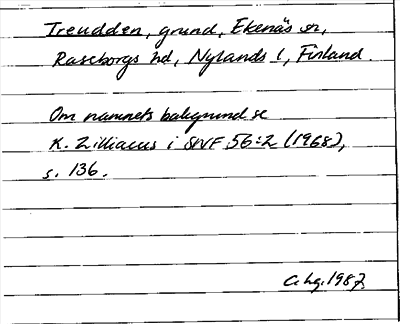 Treudden, grund, Ekenäs sn,
Raseborgs hd, Nylands l, Finland.
Om namnets bakgrund se
K. Zilliacus i SNF 56:2 (1968),
s. 136.
1987.